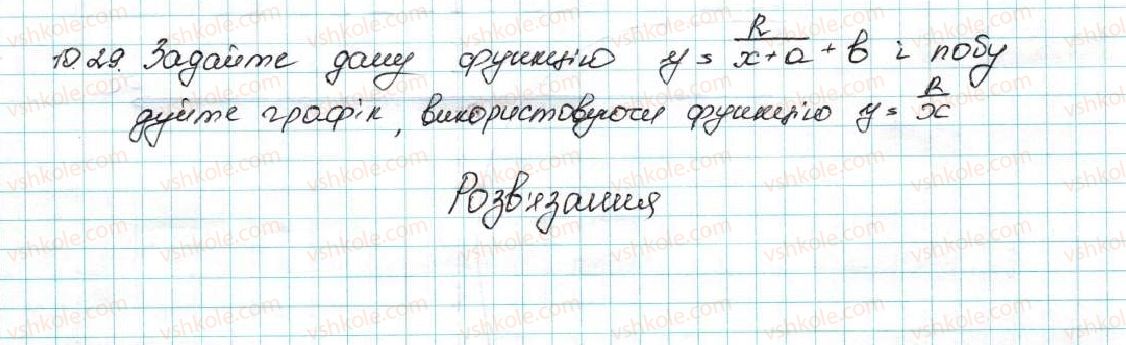 10.29. Задайте дану функцію y = k/(x+a) + b і побу
дуйте графік, використовуючи функцію y = k/x
Розв'язання